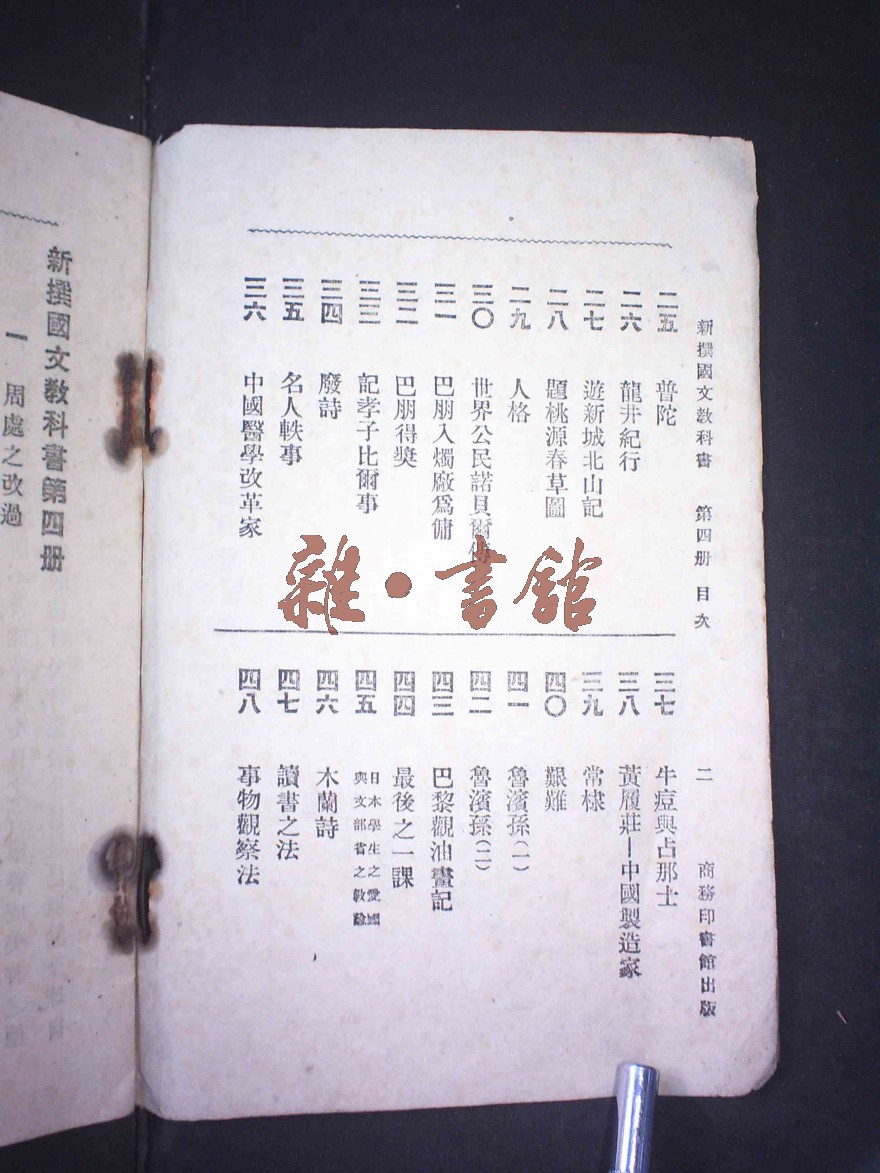 新撰國文教科書 第四册 目次
二
商務印書館出版
二五 普陀
二六 龍井紀行
二七 遊新城北山記
二八 題桃源春草圖
二九 人格
三〇 世界公民諾貝爾傳
三一 巴朋入燭廠爲傭
三二 巴朋得奬
三三 記孝子比爾事
三四 廢詩
三五 名人軼事
三六 中國醫學改革家
三七 牛痘與占那士
三八 黃履莊—中國製造家
三九 常棣
四〇 艱難
四一 魯濱孫(一)
四二 魯濱孫(二)
四三 巴黎觀油畫記
四四 最後之一課
四五 日本學生之愛國
與文部省之教驗
四六 木蘭詩
四七 讀書之法
四八 事物觀察法
新撰國文教科書第四册
一 周處之改過
雜·書館